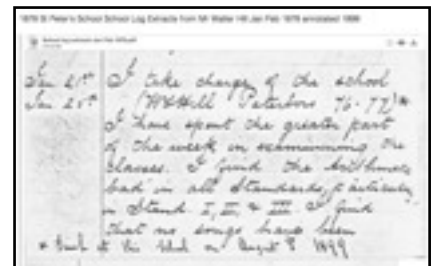 1879 St Peter's School School Log Extracts from Mr Walter Hill Jan Feb 1879 annotated 1899
Jan 21st I take charge of the school
Jan 25th (W Hill Peterboro 76-77)*
I have spent the greater part
of the week in examining the
classes. I find the Arithmetic
bad in all Standards, particularly
in Stand. I, II, & III. I find
that no songs have been
* at this School on August 8 1899